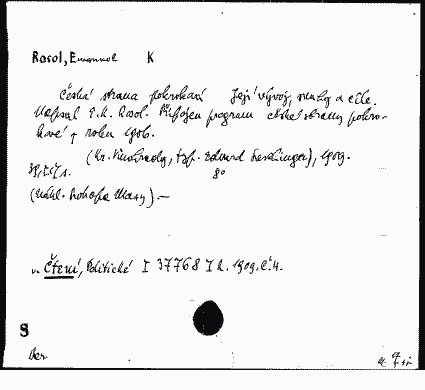 Rosol, Emanuel K
Česká strana pokroková Její vývoj, snahy a cíle.
Napsal E. K. Rosol. Připojen program české strany pokro-
kové z roku 1906.
(Kr. Vinohrady, typ. Eduard Leschinger), 1909.
8°
(Nákl. Prokopa Maxy) —
v. Čtení, Politické I 37768 I R. 1909. č. 4.
8